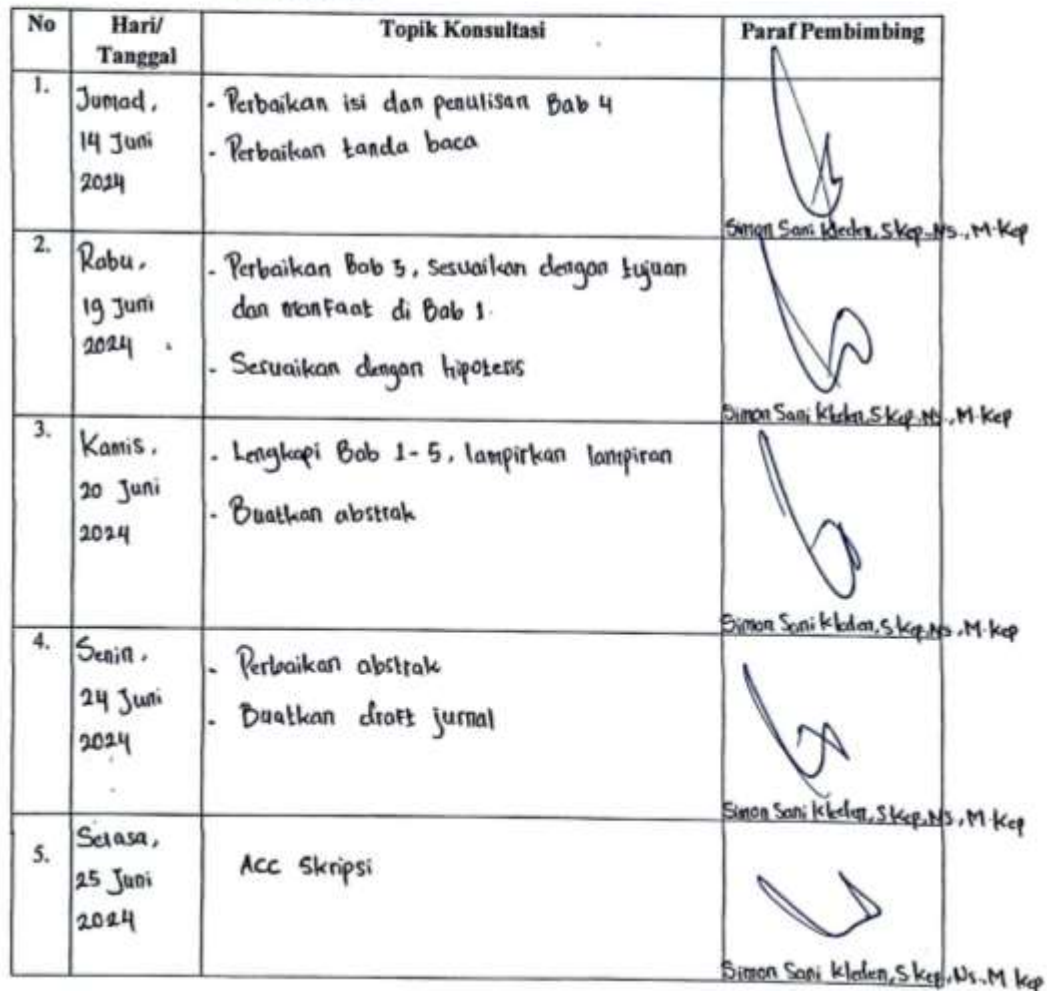 No Hari/ Tanggal Topik Konsultasi Paraf Pembimbing
1. Jumad, 14 Juni 2024
- Perbaikan isi dan penulisan Bab 4
- Perbaikan tanda baca
Simon Sani Kleden, S.Kep.,Ns., M.Kep
2. Rabu, 19 Juni 2024
- Perbaikan Bab 3, Sesuaikan dengan tujuan
dan manfaat di Bab 1.
- Sesuaikan dengan hipotesis
Simon Sani Kleden, S.Kep.,Ns., M.Kep
3. Kamis, 20 Juni 2024
- Lengkapi Bab 1-5, lampirkan lampiran
- Buatkan abstrak
Simon Sani Kleden, S.Kep,Ns., M.Kep
4. Senin, 24 Juni 2024
- Perbaikan abstrak
- Buatkan draft jurnal
Simon Sani Kleden, S.Kep,Ns, M.Kep
5. Selasa, 25 Juni 2024
Acc Skripsi
Simon Sani Kleden, S.Kep,Ns.M Kep